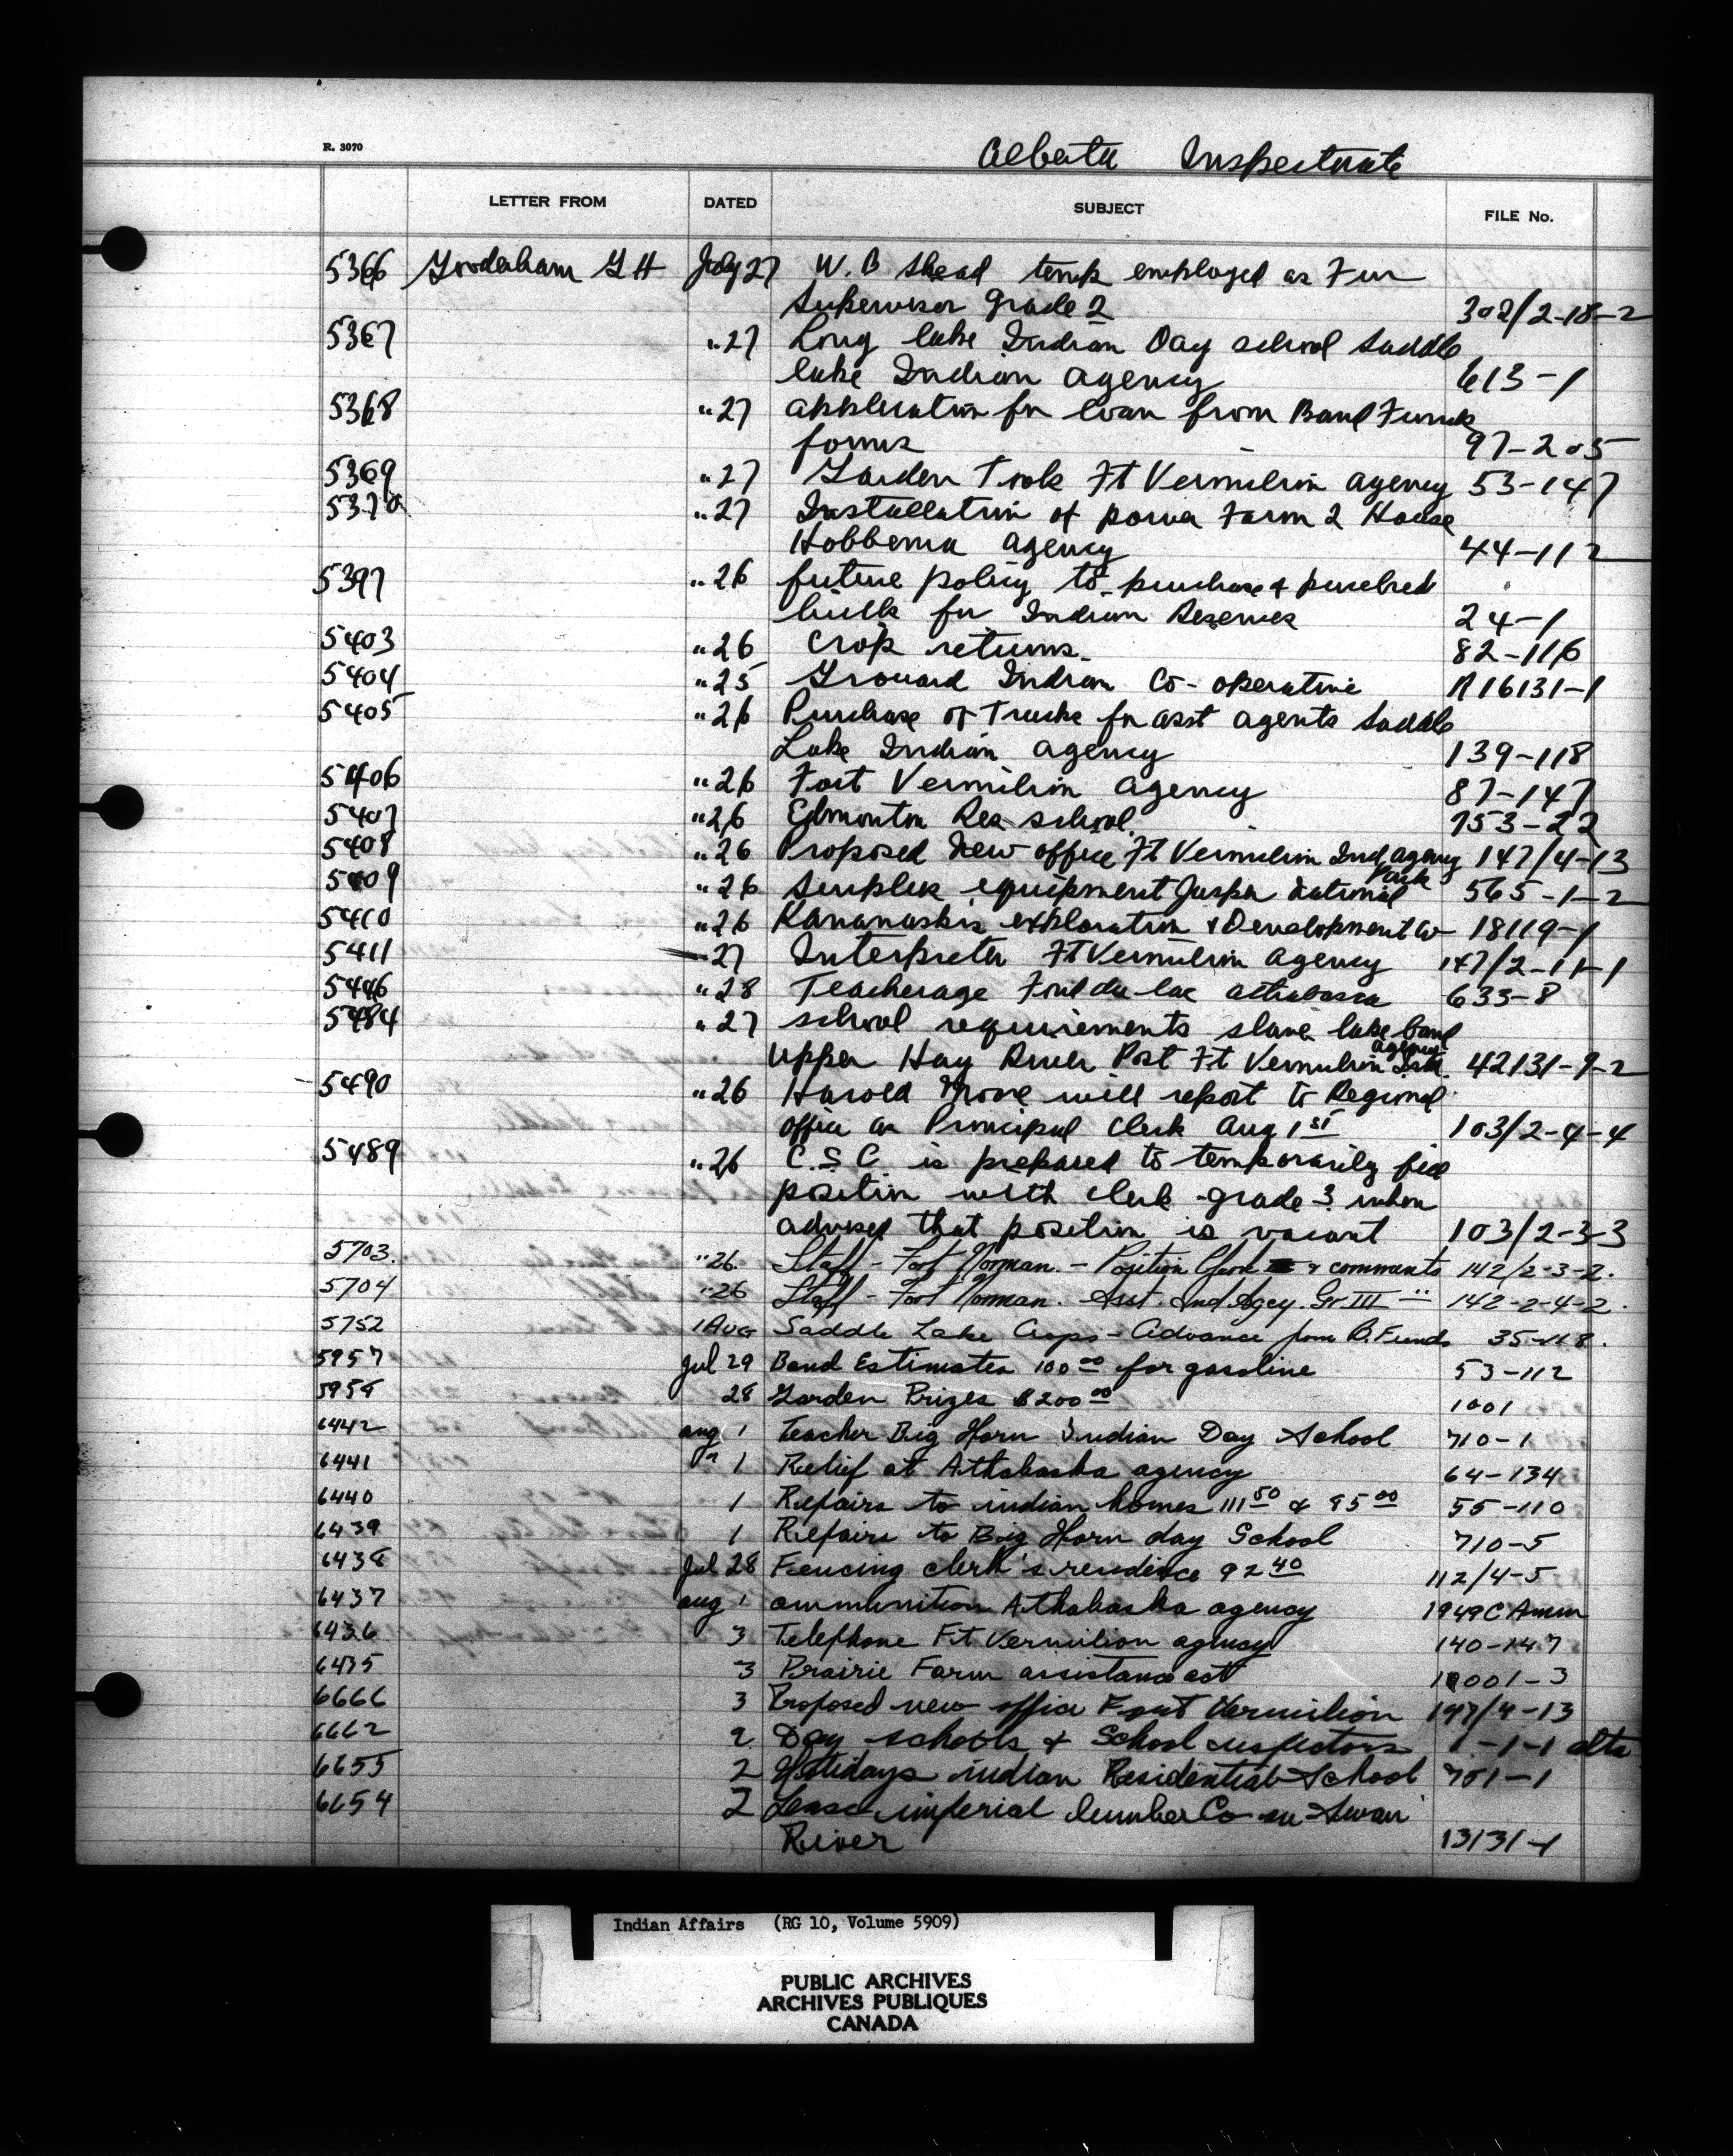 R. 3070
Alberta Inspectorate
LETTER FROM DATED SUBJECT FILE No.
5366 Gooderham G H July 27 W. B Skead temp employed as Fur
Supervisor Grade 2 302/2-18-2
5367 " 27 Long lake Indian Day school Saddle
lake Indian Agency 613-1
5368 " 27 application for loan from Band Funds
forms 97-205
5369 " 27 Garden Tools Ft Vermilion Agency 53-147
5370 " 27 Installation of power Farm 2 House
Hobbema Agency 44-112
5397 " 26 future policy to purchase purebred
bulls for Indian Reserves 24-1
5403 " 26 Crop returns. 82-116
5404 " 25 Grouard Indian Co-operative A16131-1
5405 " 26 Purchase of Trucks for asst agents Saddle
Lake Indian Agency 139-118
5406 " 26 Fort Vermilion Agency 87-147
5407 " 26 Edmonton Res school. 753-22
5408 " 26 Proposed New office Ft Vermilion Ind Agency 147/4-13
5409 " 26 Surplus equipment Jasper National Park 565-1-2
5410 " 26 Kananaskis exploration & Development Co 18119-1
5411 27 Interpreter Ft Vermilion Agency 147/2-11-1
5446 " 28 Teacherage Fond du lac Athabasca 633-8
5484 " 27 School requirements slave lake band
Upper Hay River Post Ft Vermilion Agency 42131-9-2
5490 " 26 Harold will report to Regional
office as Principal Clerk Aug 1st 103/2-4-4
5489 " 26 C.S.C. is prepared to temporarily fill
position with clerk grade 3 when
advised that position is vacant 103/2-3-3
5703. " 26. Staff - Fort Norman. - Position Clerk & comments 142/2-3-2.
5704 " 26 Staff - Fort Norman. Asst. Ind Agcy. Gr III " 142-2-4-2.
5752 1 Aug Saddle Lake Crops - Advance from B. Funds 35-118.
5957 Jul 29 Band Estimates 100 00 for gasoline 53-112
5958 28 Garden Prizes $200 00 1001
6442 Aug 1 Teacher Big Horn Indian Day School 710-1
6441 " 1 Relief at Athabaska agency 64-134
6440 1 Repairs to indian homes 111 50 & 95 00 55-110
6439 1 Repairs to Big Horn day School 710-5
6438 Jul 28 Fencing clerk's residence 92 40 112/4-5
6437 Aug 1 ammunition Athabaska agency 1949 C Amm
6436 3 Telephone Ft Vermilion agency 140-147
6435 3 Prairie Farm assistance act 10001-3
6666 3 Proposed new office Fort Vermilion 147/4-13
6662 2 Day schools & School inspectors 1-1-1 alta
6655 2 Holidays indian Residential School 701-1
6654 2 Lease imperial lumber Co on Swan
River 13131-1
Indian Affairs (RG 10, Volume 5909)
PUBLIC ARCHIVES
ARCHIVES PUBLIQUES
CANADA